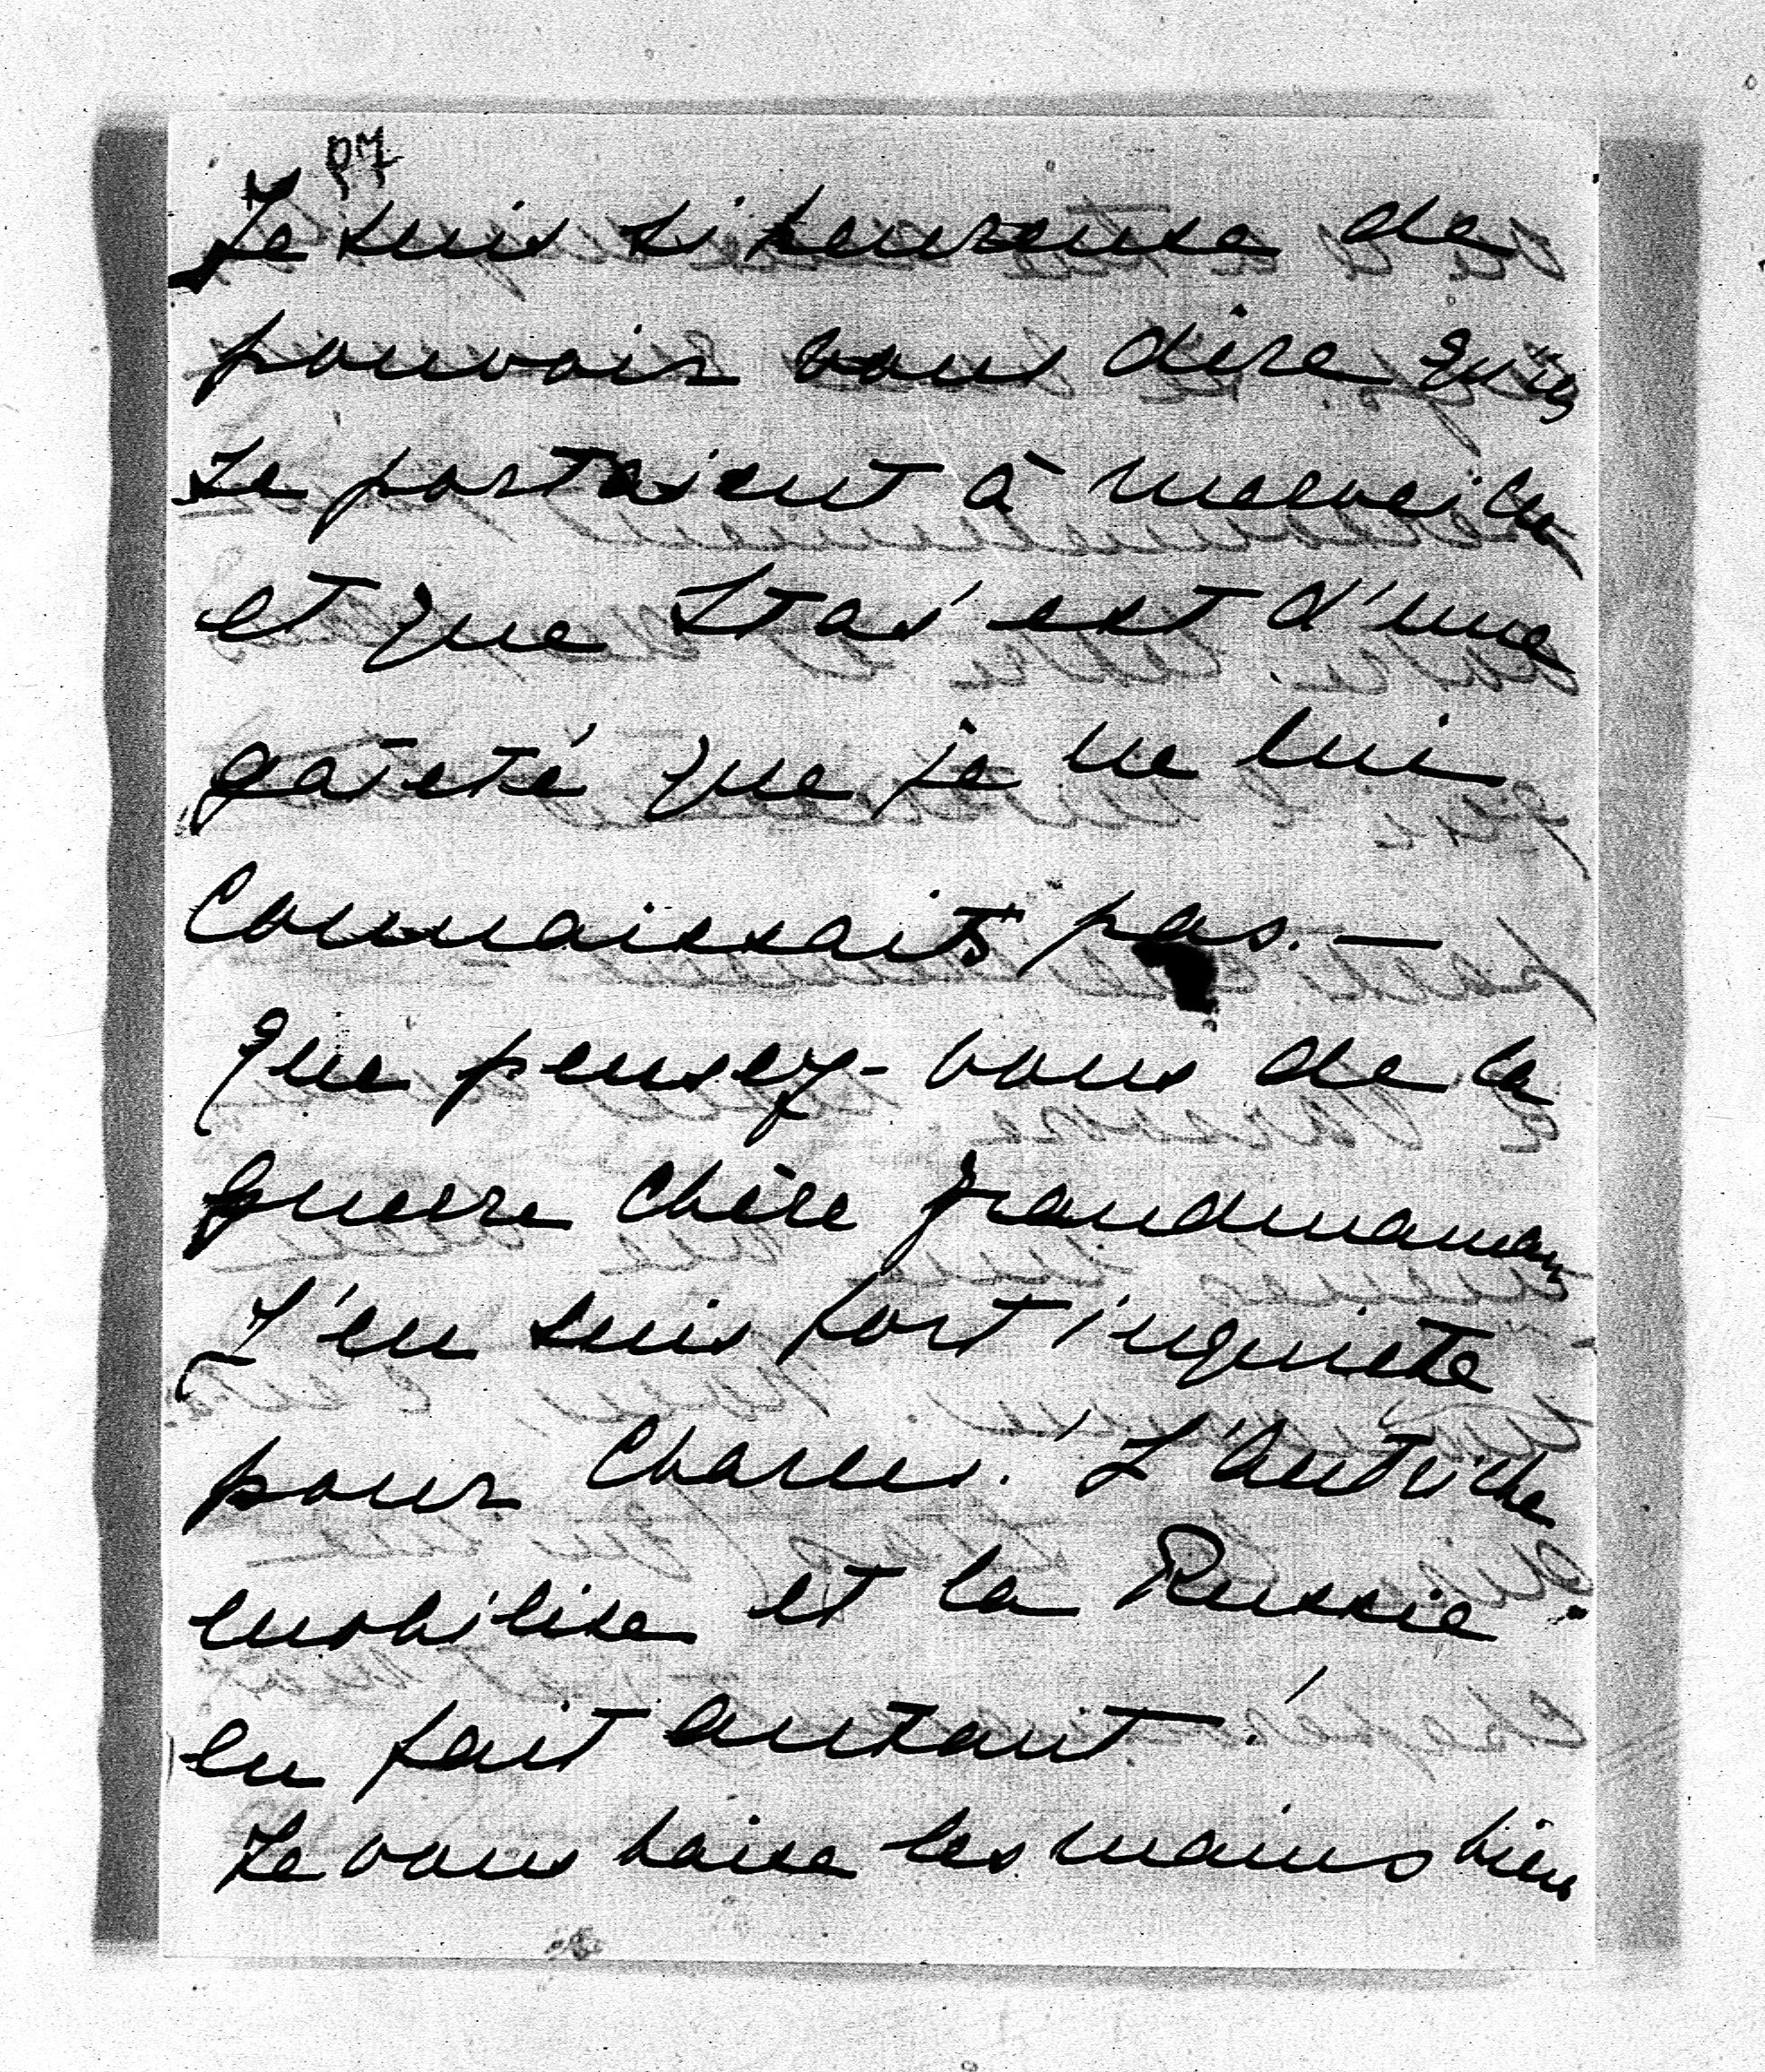 p7
Je suis si heureuse de
pouvoir vous dire qu'ils
se portaient à merveille
et que Staś est d'une
gaïeté que je ne lui
connaissait pas. —
Que pensez-vous de la
guerre chère grandmaman
J'en suis fort inquiète
pour Charles. L'Autriche
mobilise et la Russie
en fait autant !
Je vous baise les mains bien